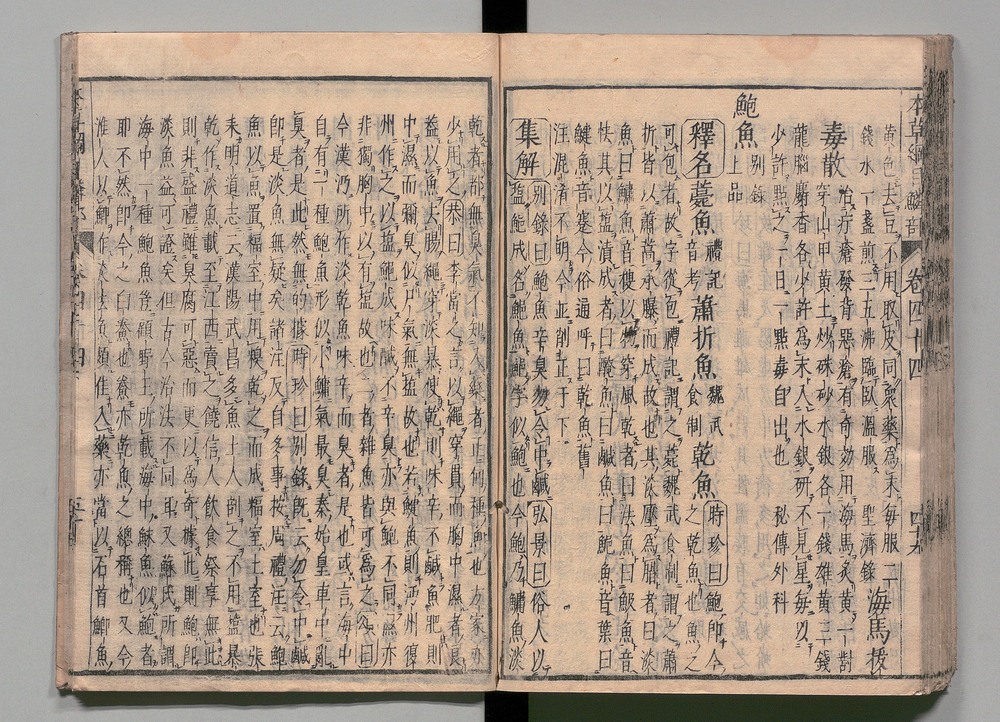 黄色去豆不用取皮同衆藥為末毎服二
錢水一盞煎三五沸臨臥溫服 聖濟錄 海馬拔
毒散 治疔瘡發背惡瘡有奇効用海馬炙黄一對
穿山甲黄土炒硃砂水銀各一錢雄黄三錢
龍腦麝香各少許為末入水銀研不見星毎以
少許㸃之一日一㸃毒自出也 秘傳外科
鮑魚 別錄上品
釋名 薧魚 禮記音考 蕭折魚 魏武食制 乾魚 時珍曰鮑即今之乾魚也魚之
可包者故字從包禮記謂之薧魏武食制謂之蕭
折皆以蕭蒿承曝而成故也其淡壓為腊者曰淡
魚曰鱐魚音搜以物穿風乾者曰法魚曰魥魚音
怯其以鹽漬成者曰醃魚曰鹹魚曰鮿魚音葉曰
鰎魚音蹇今俗通呼曰乾魚舊
注混淆不明今並削正于下
集解 別錄曰鮑魚辛臭勿令中鹹 弘景曰俗人以
鹽鮑成名鮑魚鮑字似鮑也今鮑乃鱅魚淡
乾者都無臭氣不知入藥者正何種魚也 方家亦
少用之 恭曰李當之言以繩穿貫而胸中濕者良
蓋以魚去腸繩穿淡暴使乾則味辛不鹹魚肥則
中濕而彌臭似尸氣無鹽故也若鰎魚則沔州復
州作之以鹽鰎成味鹹不辛臭亦與鮑不同濕亦
非獨胸中以有鹽故也二者雜魚皆可為之 頌曰
今漢沔所作淡乾魚味辛而臭者是也或言海中
自有一種鮑魚形似小鱅氣最臭秦始皇車中亂
臭者是此然無的據 時珍曰別錄既云勿令中鹹
即是淡魚無疑矣諸注反自多事按周禮注云鮑
魚以魚置糗室中用糗乾之而成糗室土室也張
耒明道志云漢陽武昌多魚土人剖之不用鹽暴
乾作淡魚載至江西賣之饒信人飲食祭享無此
則非盛禮雖臭腐可惡而更以為奇據此則鮑即
淡魚益可證矣但古今治法不同耳又蘇氏所謂
海中一種鮑魚豈顧野王所載海中䱹魚似鮑者
耶不然即今之白鯗也鯗亦乾魚之總稱也又今
淮人以鯽作淡魚頗佳入藥亦當以石首鯽魚
本草綱目鱗部 卷四十四 四十九